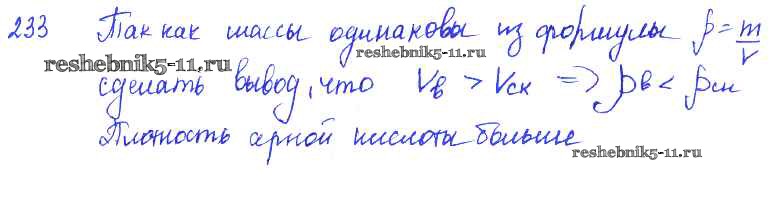 233 Так как массы одинаковы из формулы ρ = m/V
reshebnik5-11.ru
reshebnik5-11.ru
сделать вывод, что Vв > Vск => ρв < ρск
Плотность серной кислоты больше
reshebnik5-11.ru